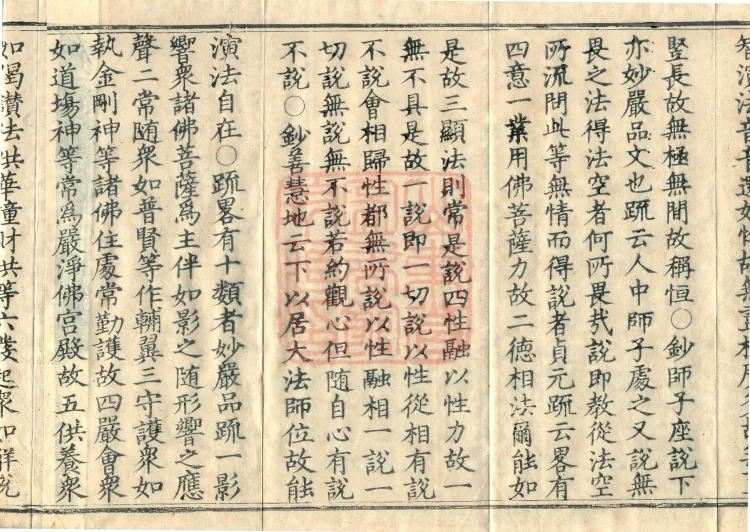 豎長故無極無間故稱恒〇鈔師子座說下
亦妙嚴品文也疏云人中師子處之又說無
畏之法得法空者何所畏㢤說即教從法空
所流問此等無情而得說者貞元疏云畧有
四意一業用佛菩薩力故二德相法爾能如
是故三顯法則常是說四性融以性力故一
無不具是故一說即一切說以性從相有說
不說會相歸性都無所說以性融相一說一
切說無說無不說若約觀心但随自心有說
不說〇鈔善慧地云下以居大法師位故能
演法自在〇疏畧有十類者妙嚴品疏一影
響衆諸佛菩薩為主伴如影之随形響之應
聲二常随衆如普賢等作輔翼三守護衆如
執金剛神等諸佛住處常勤護故四嚴會衆
如道場神等常為嚴淨佛宮殿故五供養衆